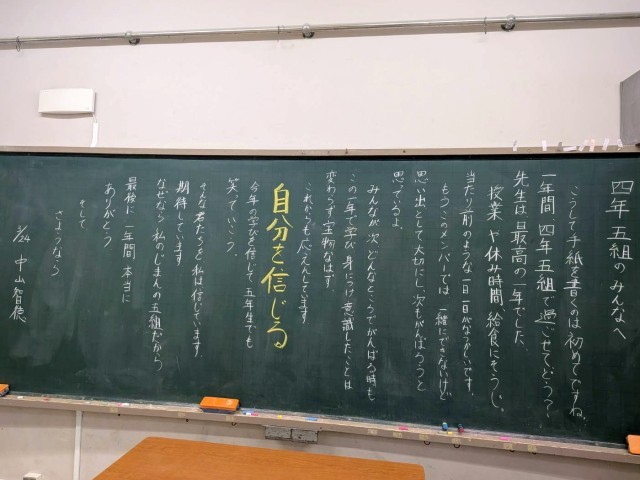 四年五組のみんなへ
こうして手紙を書くのは初めてですね。
一年間四年五組で過ごせてどう?
先生は最高の一年でした。
授業や休み時間給食にそうじ。
当たり前のような一日一日がなつかしいです。
もうこのメンバーでは一緒にできないけど
思い出として大切にし、次もがんばろうと
思っているよ。
みんなが次どんなところでがんばる時も
この一年で学び身につけ意識したことは
変わらず宝物なはず。
これからも応えんしています
自分を信じる
今年の学びを信じて五年生でも
笑っていこう。
そんな君たちを私は信じています
期待しています
なぜなら私のじまんの五組だから
最後に一年間本当に
ありがとう
そして
さようなら
3/24 中山智徳